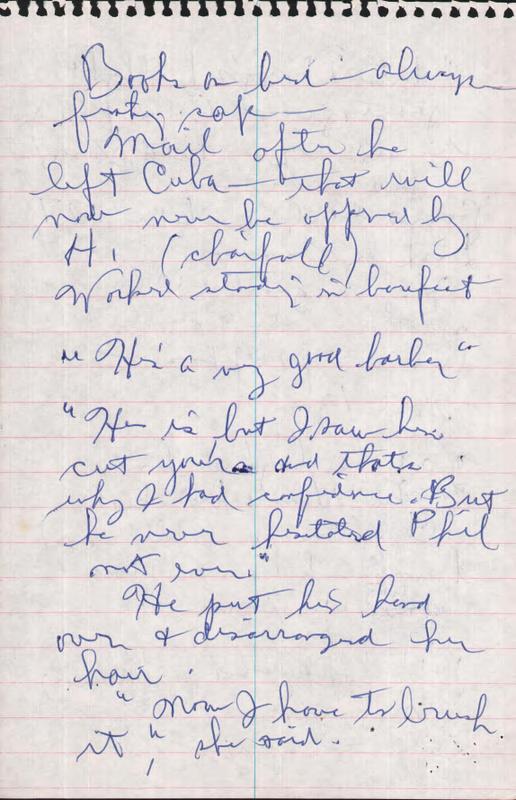 Books on bed — always
fresh, sap —
Mail after he
left Cuba — that will
now never be opened by
H. (chairfull)
Worked standing in barefeet
"He's a very good barber"
"He is, but I saw him
cut yours and thats
why I had confidence. But
he never hesitated Phil
not ever."
He put his hand
over & disarranged her
hair.
"Now I have to brush
it", she said.